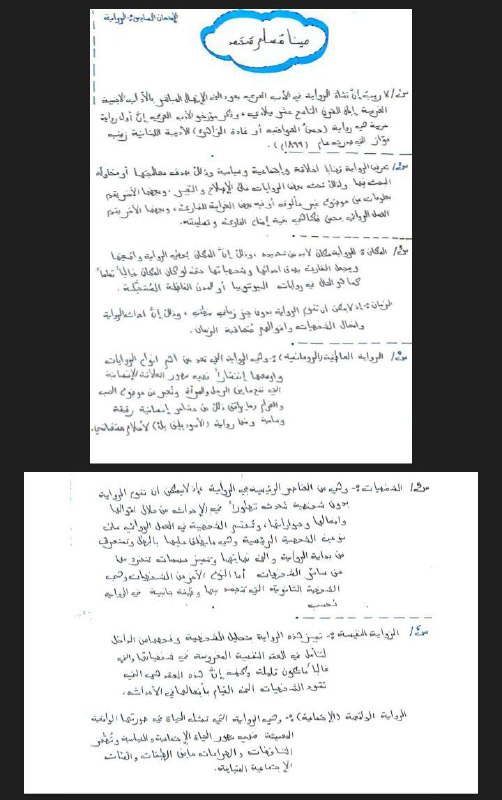 الامتحان السادس: الرواية
مينا مسلم محمد
س١/ لا ريب إنَّ نشأة الرواية في الأدب العربي يعود الى الاتصال المباشر بالآداب الأجنبية
الغربية إبان القرن التاسع عشر ميلادي، وذكر مؤرخو الأدب العربي إنَّ أول رواية
عربية هي رواية (حسن العواقب أو غادة الزاهرة) للأديبة اللبنانية زينب
فوّاز التي صدرت عام (١٨٩٩م).
تعرض الرواية قضايا اخلاقية واجتماعية وسياسية وذلك بهدف معالجتها أو محاولة
البحث بها ولذلك تحث بعض الروايات على الإصلاح والتغيير. وبعضها الآخر يقدم
معلومات عن موضوع غير مألوف أو فيه بعض الغرابة للقارئ، وبعضها الآخر يقدم
العمل الروائي بحس فكاهي بغية إمتاع القارئ وتسليته.
المكان: للرواية مكان لابد من تحديده، وذلك إنَّ المكان يعطي الرواية واقعيتها
ويجعل القارئ يصدق احداثها وشخصياتها حتى لو كان المكان خيالياً تماماً
كما هو الحال في روايات اليوتوبيا أو المدن الفاضلة المُتخيلة.
الزمان: إذ لا يمكن ان تقوم الرواية بدون حيز زماني مطلب، وذلك إنَّ احداث الرواية
وافعال الشخصيات واقوالهم مُتعاقبة الزمان.
الرواية العاطفية (الرومانسية): وهي الرواية التي تعد من اهم انواع الروايات
واوسعها إنتشاراً تصب محور العلاقة الإنسانية
التي تنتج ما بين الرجل والمرأة وتُعبر عن موضوع الحب
والغرام وما يرافق ذلك من مشاعر إنسانية رقيقة
وسامية ومنها رواية (الأسود يليق بك) لأحلام مستغانمي.
الشخصيات: وهي من العناصر الرئيسية في الرواية فإذ لا يمكن ان تقوم الرواية
بدون شخصية تُحدث تطوراً في الاحداث من خلال اقوالها
وافعالها وحواراتها، وتُقسم الشخصية في العمل الروائي على
نوعين الشخصية الرئيسية وهي ما يطلق عليها بالبطل وتستمر
من بداية الرواية والى نهايتها وتتميز بسمات تنفرد بها
عن سائر الشخصيات أما النوع الآخر من الشخصيات وهي
الشخصية الثانوية التي تتجسد بها وظيفة جانبية في الرواية
فحسب
الرواية النفسية: تتميز هذه الرواية بتحليل الشخصية وفحصها من الداخل
لتتأمل في العقد النفسية المغروسة في شخصياتها والتي
غالباً ما تكون قليلة وكيف إنَّ هذه العقد هي التي
تقود الشخصيات الى القيام بأفعالها في الأحداث.
الرواية الواقعية (الاجتماعية): وهي الرواية التي تمثل الحياة في صورتها الواقعية
المعيشة فهي تصور الحياة الاجتماعية والسياسية وتُظهر
التناقضات والصراعات ما بين الطبقات والفئات
الإجتماعية المتباينة.